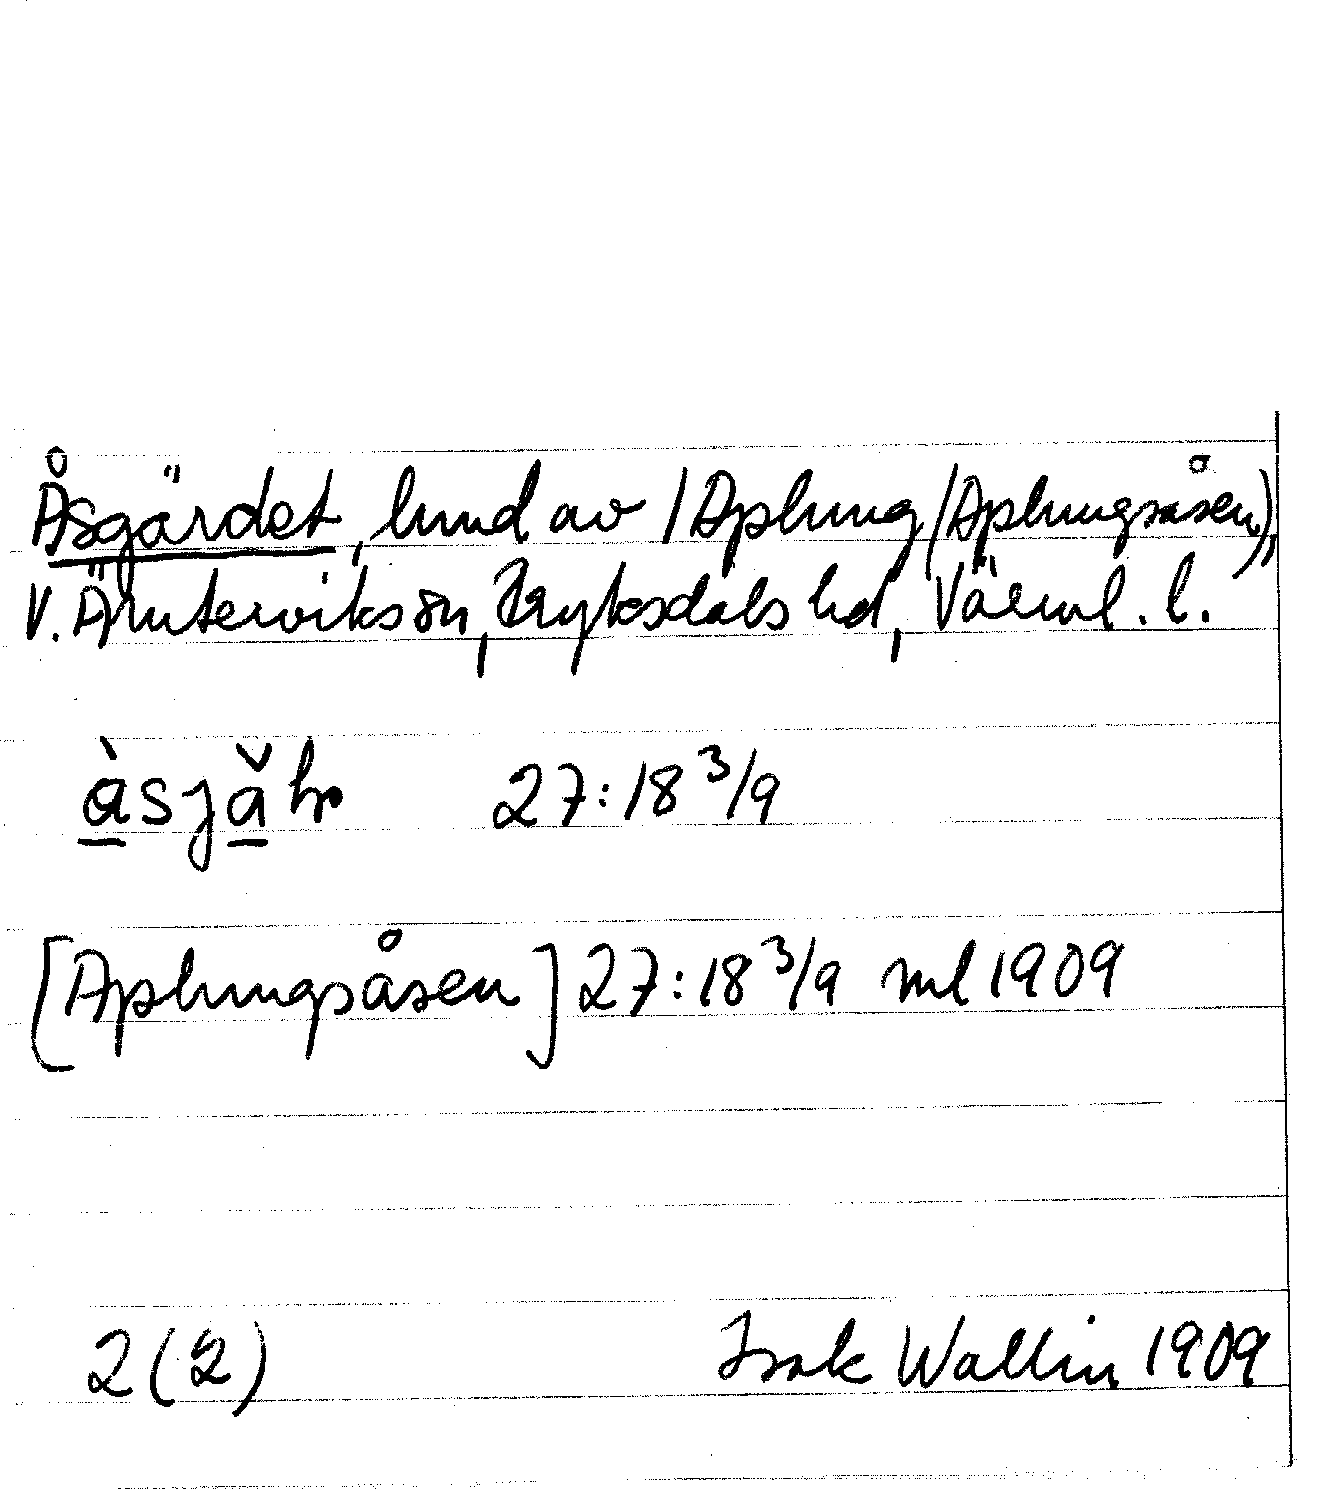 Åsgärdet, hmd av 1 Aplung (Aplungsåsen),
V. Ämterviks sn, Fryksdals hd, Värml. l.
27:18 3/9
[Aplungsåsen] 27:18 3/9 ml 1909
2 (2) Isak Wallin 1909